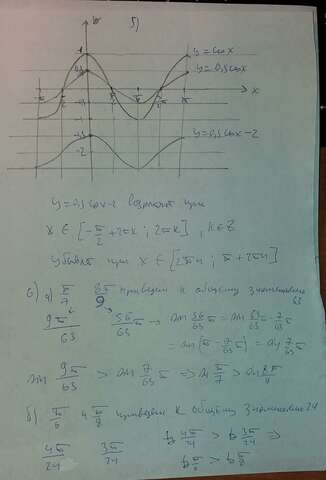 5)
y = cos x
y = 0,5 cos x
x
y = 0,5 cos x - 2
-2
y = 0,5 cos x - 2 возрастает при
x ∈ [-π/2 + 2πk ; 2πk], k ∈ Z
убывает при x ∈ [2πn ; π + 2πn]
6) а) π/7 8π/9 приведем к общему знаменателю 63
9π/63 56π/63 → sin 56/63 π = sin 63/63 π - 7/63 π
= sin(π - 7/63 π) = sin 7/63 π
sin 9π/63 > sin 7/63 π ⇒ sin π/7 > sin 8π/9
б) π/6 и π/8 приведем к общему знаменателю 24
4π/24 3π/24 tg 4π/24 > tg 3π/24 ⇒
tg π/6 > tg π/8